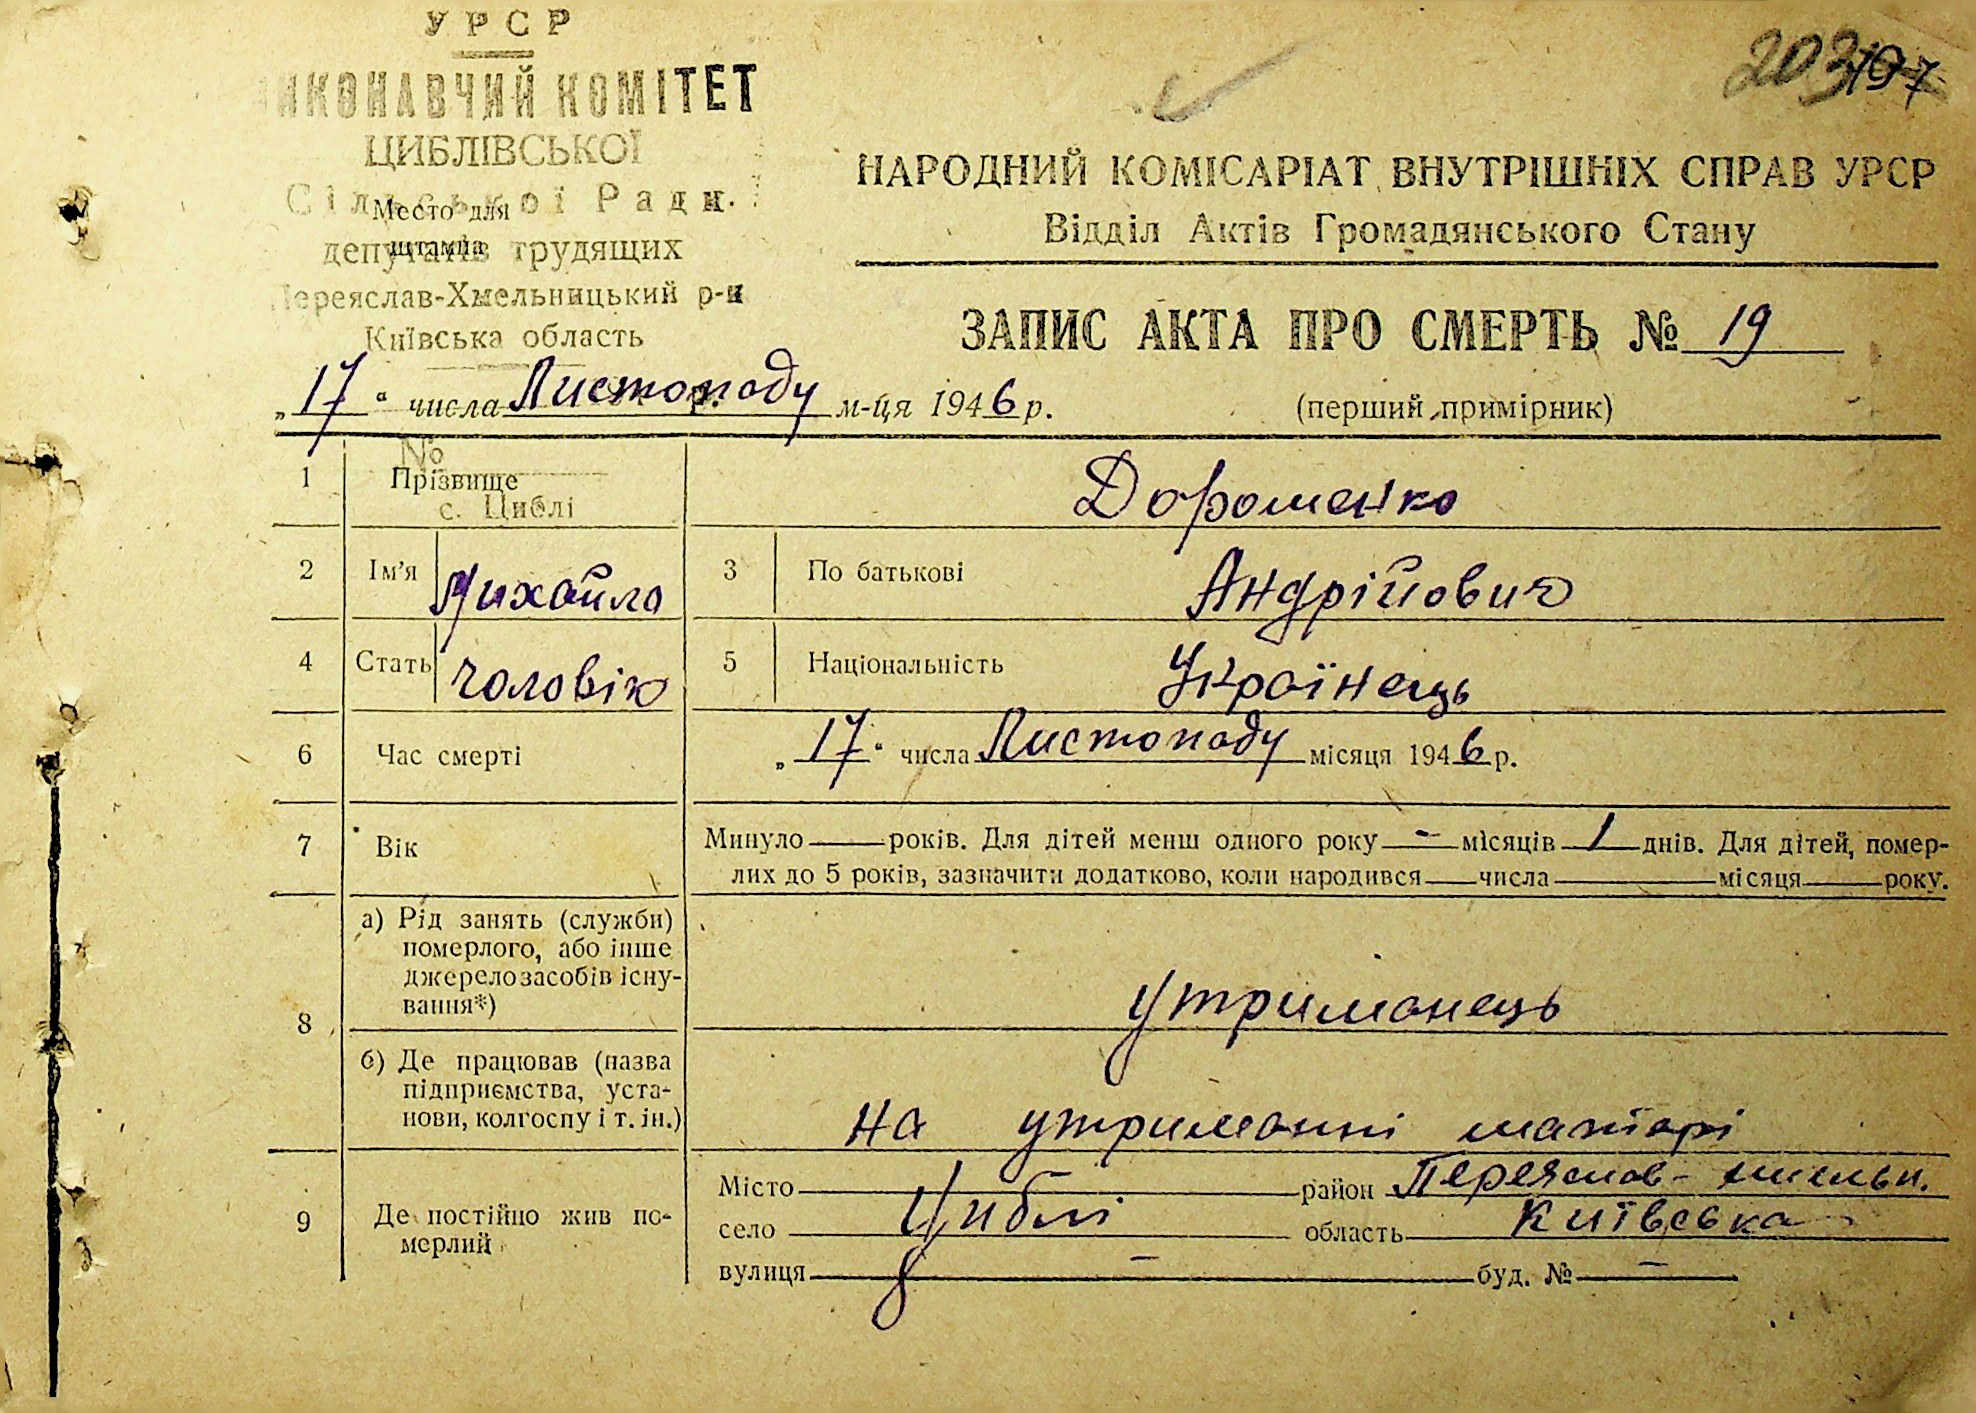 УРСР
203 197
ВИКОНАВЧИЙ КОМІТЕТ
ЦИБЛІВСЬКОЇ
Сільської Ради
Место для
штампа
депутатів трудящих
Переяслав-Хмельницький р-н
Київська область
НАРОДНИЙ КОМІСАРІАТ ВНУТРІШНІХ СПРАВ УРСР
Відділ Актів Громадянського Стану
ЗАПИС АКТА ПРО СМЕРТЬ № 19
„17“ числа Листопаду м-ця 1946 р.
(перший примірник)
№
с. Циблі
1 Прізвище Дорошенко
2 Ім'я Михайло 3 По батькові Андрійович
4 Стать чоловік 5 Національність Українець
6 Час смерті „17“ числа Листопаду місяця 1946 р.
7 Вік Минуло — років. Для дітей менш одного року - місяців 1 днів. Для дітей, помер-
лих до 5 років, зазначити додатково, коли народився — числа — місяця — року.
8 а) Рід занять (служби)
померлого, або інше
джерело засобів існу-
вання*)
утриманець
б) Де працював (назва
підприємства, уста-
нови, колгоспу і т. ін.)
на утриманні матері
9 Де постійно жив по-
мерлий
Місто район Переяслав-
село Циблі область Київська
вулиця — буд. № —